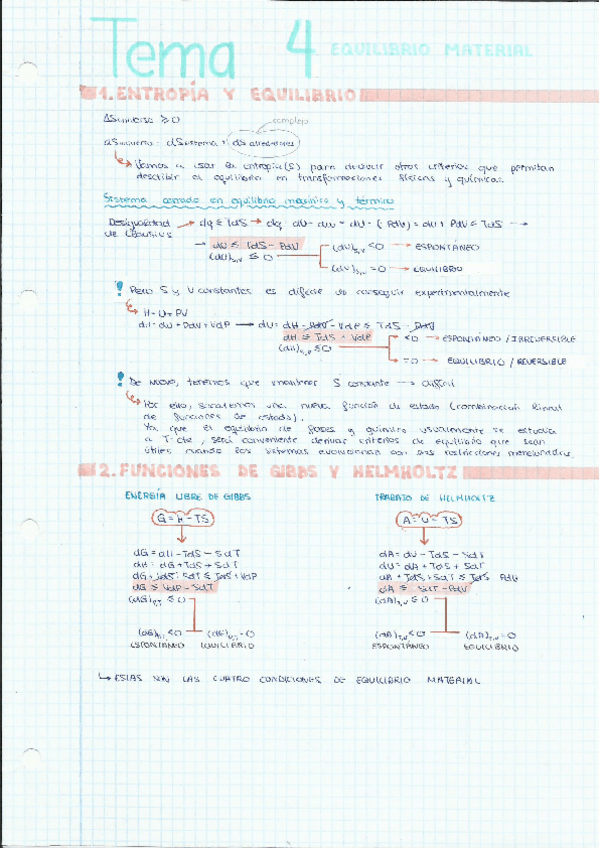 Tema 4 EQUILIBRIO MATERIAL
1. ENTROPÍA Y EQUILIBRIO
ΔSuniverso ≥ 0
complejo
dSuniverso = dSsistema + dSalrededores
Vamos a usar la entropía (S) para deducir otros criterios que permitan
describir el equilibrio en transformaciones físicas y químicas.
Sistema cerrado en equilibrio mecánico y térmico
Desigualdad → dq ≤ TdS → dq = dU - dw = dU - (-PdV) = dU + PdV ≤ TdS →
de Clausius
→ dU ≤ TdS - PdV
(dU)s,v ≤ 0
(dU)s,v < 0 → ESPONTÁNEO
(dU)s,v = 0 → EQUILIBRIO
! Pero S y V constantes es difícil de conseguir experimentalmente
H = U + PV
dH = dU + PdV + VdP → dU = dH - PdV - VdP ≤ TdS - PdV
dH ≤ TdS + VdP
(dH)s,p ≤ 0
< 0 → ESPONTÁNEO / IRREVERSIBLE
= 0 → EQUILIBRIO / REVERSIBLE
! De nuevo, tenemos que mantener S constante → difícil
Por ello, una nueva función de estado (combinación lineal
de funciones de estado).
Ya que el equilibrio de fases y químico usualmente se estudia
a T cte, será conveniente derivar criterios de equilibrio que sean
útiles cuando los sistemas evolucionan con sus restricciones mencionadas.
2. FUNCIONES DE GIBBS Y HELMHOLTZ
ENERGÍA LIBRE DE GIBBS
G = H - TS
dG = dH - TdS - SdT
dH = dG + TdS + SdT
dG + TdS + SdT ≤ TdS + VdP
dG ≤ VdP - SdT
(dG)P,T ≤ 0
(dG)P,T < 0 (dG)P,T = 0
ESPONTÁNEO EQUILIBRIO
TRABAJO DE HELMHOLTZ
A = U - TS
dA = dU - TdS - SdT
dU = dA + TdS + SdT
dA + TdS + SdT ≤ TdS - PdV
dA ≤ - SdT - PdV
(dA)T,V ≤ 0
(dA)T,V < 0 (dA)T,V = 0
ESPONTÁNEO EQUILIBRIO
↳ ESTAS SON LAS CUATRO CONDICIONES DE EQUILIBRIO MATERIAL